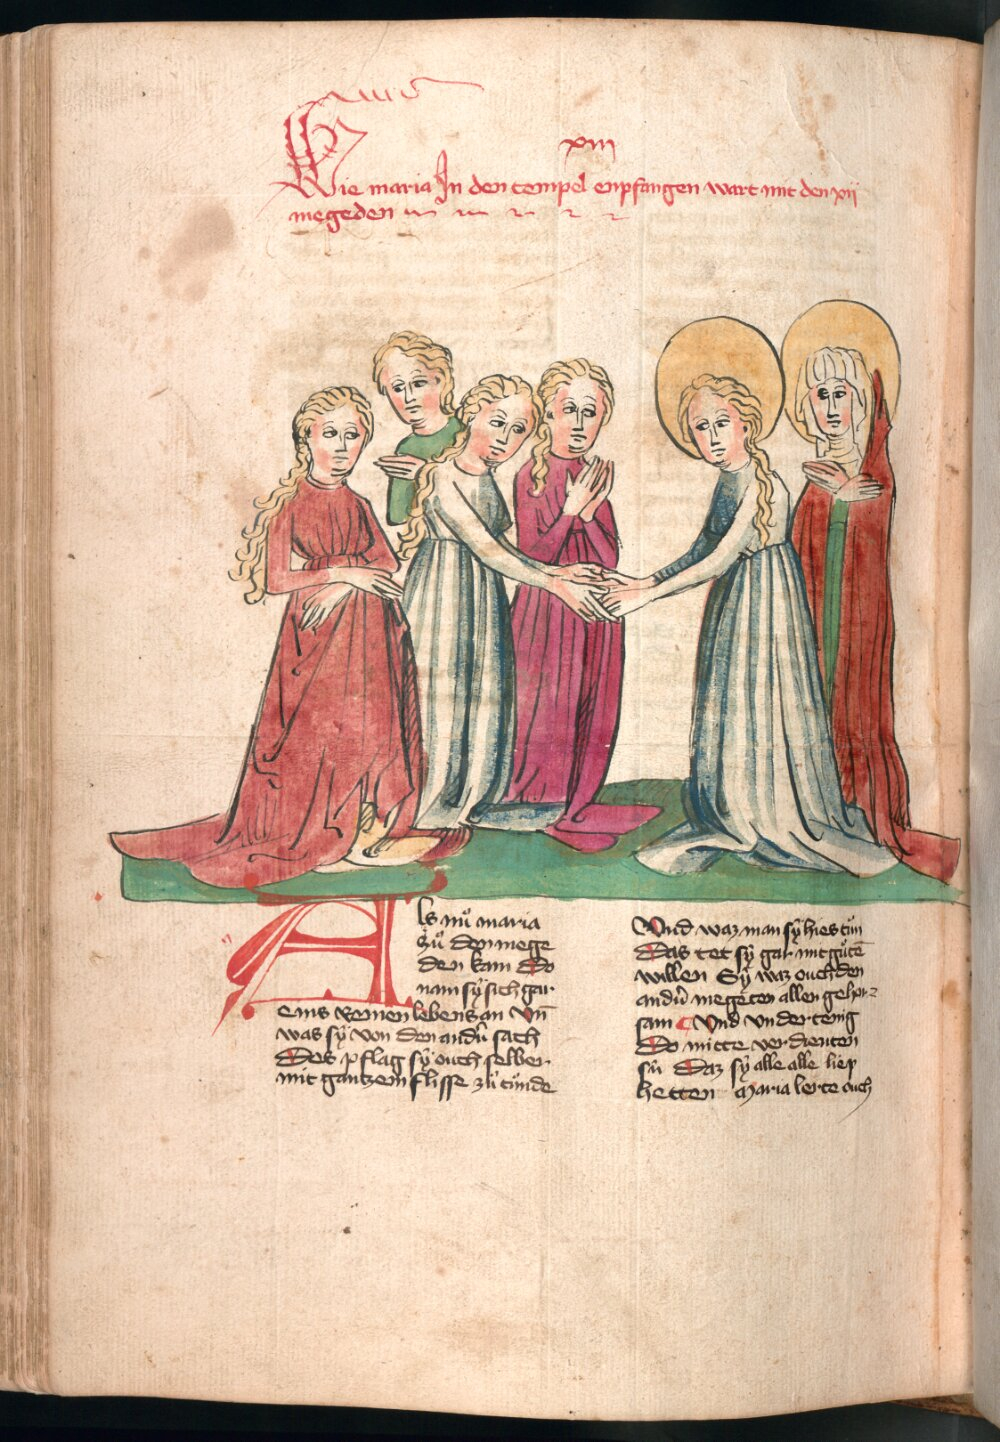 xiii
Wie maria In den tempel enpfangen wart mit den xii
megeden
Als nuͦ maria
zuͦ den mege
den kam Do
nam sy̋ sich gar
eins Reinen lebens an Vn̄
was sy̋ von den andn̄ sach
Des pflag sy̋ ouch selber
mit gantzem flisse zuͦ tuͦnde
Vnd waz man sy̋ hies tuͦn
Das tet sy̋ gar mit guͦtē
willen Sy̋ waz ouch den
andn̄ megeten allen gehor
sam Vnd vndertenig
Do mitte verdienten
sü Daz sy̋ alle alle liep
hetten Maria lerte ouch